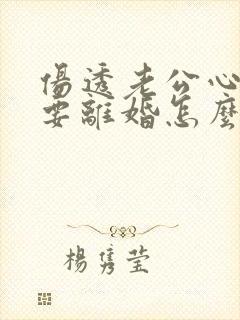 傷透老公心
要離婚怎麼
楊雋瑩